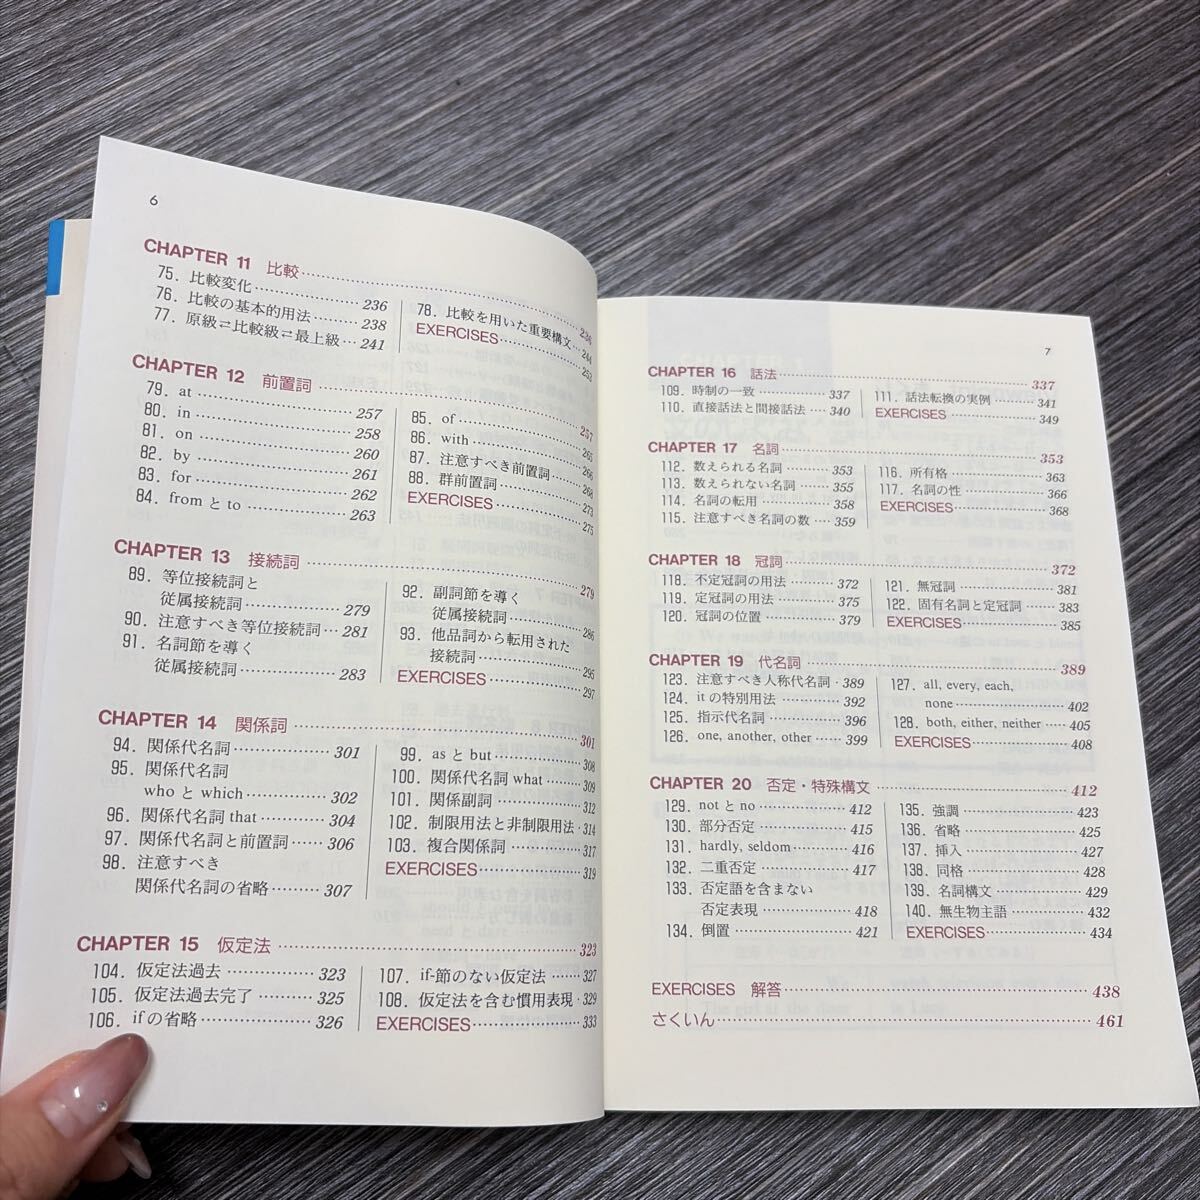 6
CHAPTER 11 比較 236
75. 比較変化 236
76. 比較の基本的用法 238
77. 原級⇌比較級⇌最上級 241
78. 比較を用いた重要構文 244
EXERCISES 253
CHAPTER 12 前置詞 257
79. at 257
80. in 258
81. on 260
82. by 261
83. for 262
84. from と to 263
85. of 265
86. with 266
87. 注意すべき前置詞 268
88. 群前置詞 273
EXERCISES 275
CHAPTER 13 接続詞 279
89. 等位接続詞と
従属接続詞 279
90. 注意すべき等位接続詞 281
91. 名詞節を導く
従属接続詞 283
92. 副詞節を導く
従属接続詞 286
93. 他品詞から転用された
接続詞 295
EXERCISES 297
CHAPTER 14 関係詞 301
94. 関係代名詞 301
95. 関係代名詞
who と which 302
96. 関係代名詞 that 304
97. 関係代名詞と前置詞 306
98. 注意すべき
関係代名詞の省略 307
99. as と but 308
100. 関係代名詞 what 309
101. 関係副詞 312
102. 制限用法と非制限用法 314
103. 複合関係詞 317
EXERCISES 319
CHAPTER 15 仮定法 323
104. 仮定法過去 323
105. 仮定法過去完了 325
106. if の省略 326
107. if-節のない仮定法 327
108. 仮定法を含む慣用表現 329
EXERCISES 333
7
CHAPTER 16 話法 337
109. 時制の一致 337
110. 直接話法と間接話法 340
111. 話法転換の実例 341
EXERCISES 349
CHAPTER 17 名詞 353
112. 数えられる名詞 353
113. 数えられない名詞 355
114. 名詞の転用 358
115. 注意すべき名詞の数 359
116. 所有格 363
117. 名詞の性 366
EXERCISES 368
CHAPTER 18 冠詞 372
118. 不定冠詞の用法 372
119. 定冠詞の用法 375
120. 冠詞の位置 379
121. 無冠詞 381
122. 固有名詞と定冠詞 383
EXERCISES 385
CHAPTER 19 代名詞 389
123. 注意すべき人称代名詞 389
124. it の特別用法 392
125. 指示代名詞 396
126. one, another, other 399
127. all, every, each,
none 402
128. both, either, neither 405
EXERCISES 408
CHAPTER 20 否定・特殊構文 412
129. not と no 412
130. 部分否定 415
131. hardly, seldom 416
132. 二重否定 417
133. 否定語を含まない
否定表現 418
134. 倒置 421
135. 強調 423
136. 省略 425
137. 挿入 427
138. 同格 428
139. 名詞構文 429
140. 無生物主語 432
EXERCISES 434
EXERCISES 解答 438
さくいん 461